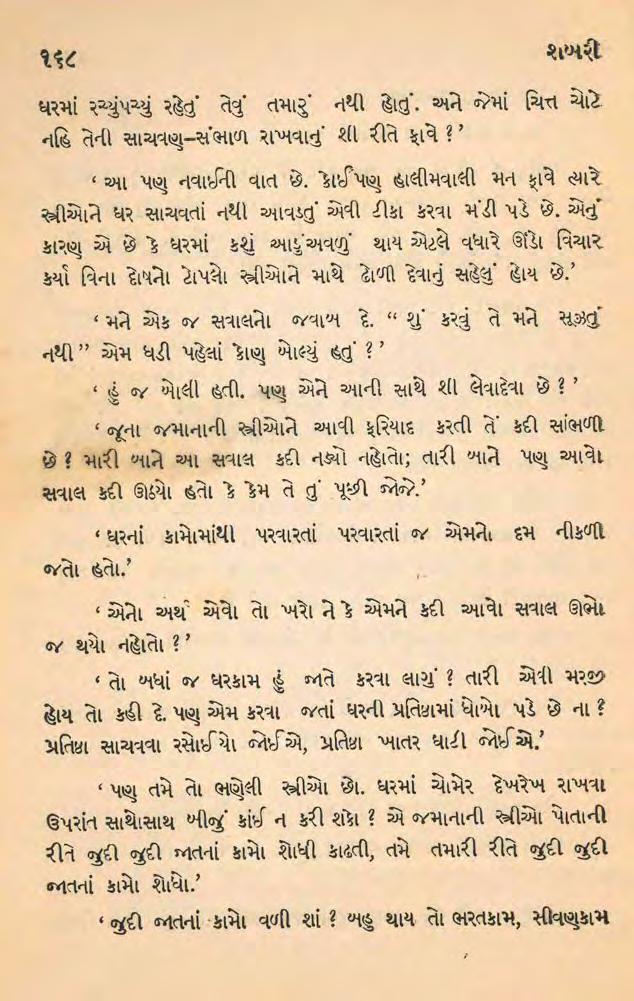 ૧૬૮
શબરી
ઘરમાં રચ્યુંપચ્યું રહેતું તેવું તમારું નથી હોતું. અને જેમાં ચિત્ત ચોટે
નહિ તેની સાચવણ–સંભાળ રાખવાનું શી રીતે ફાવે ?’
‘ આ પણ નવાઈની વાત છે. કોઈપણ હાલીમવાલી મન ફાવે ત્યારે
સ્ત્રીઓને ઘર સાચવતાં નથી આવડતું એવી ટીકા કરવા મંડી પડે છે. એનું
કારણ એ છે કે ઘરમાં કશું આડુંઅવળું થાય એટલે વધારે ઊંડો વિચાર
કર્યા વિના દોષનો ટોપલો સ્ત્રીઓને માથે ઢોળી દેવાનું સહેલું હોય છે.’
‘ મને એક જ સવાલનો જવાબ દે. “ શું કરવું તે મને સૂઝતું
નથી” એમ ઘડી પહેલાં કોણ બોલ્યું હતું ?’
‘ હું જ બોલી હતી. પણ એને આની સાથે શી લેવાદેવા છે ?’
‘ જૂના જમાનાની સ્ત્રીઓને આવી ફરિયાદ કરતી તેં કદી સાંભળી
છે ? મારી બાને આ સવાલ કદી નડ્યો નહોતો; તારી બાને પણ આવો
સવાલ કદી ઊઠયો હતો કે કેમ તે તું પૂછી જોજે.’
‘ ઘરનાં કામોમાંથી પરવારતાં પરવારતાં જ એમનો દમ નીકળી
જતો હતો.’
‘ એનો અર્થ એવો તો ખરો ને કે એમને કદી આવો સવાલ ઊભો
જ થયો નહોતો ?’
‘ તો બધાં જ ઘરકામ હું જાતે કરવા લાગું ? તારી એવી મરજી
હોય તો કહી દે. પણ એમ કરવા જતાં ઘરની પ્રતિષ્ઠામાં ધોખો પડે છે ના ?
પ્રતિષ્ઠા સાચવવા રસોઈયો જોઈએ, પ્રતિષ્ઠા ખાતર ઘાટી જોઈએ.’
‘ પણ તમે તો ભણેલી સ્ત્રીઓ છો. ઘરમાં ચોમેર દેખરેખ રાખવા
ઉપરાંત સાથોસાથ બીજું કાંઈ ન કરી શકો ? એ જમાનાની સ્ત્રીઓ પોતાની
રીતે જુદી જુદી જાતનાં કામો શોધી કાઢતી, તમે તમારી રીતે જુદી જુદી
જાતનાં કામો શોધો.’
‘ જુદી જાતનાં કામો વળી શાં ? બહુ થાય તો ભરતકામ, સીવણકામ